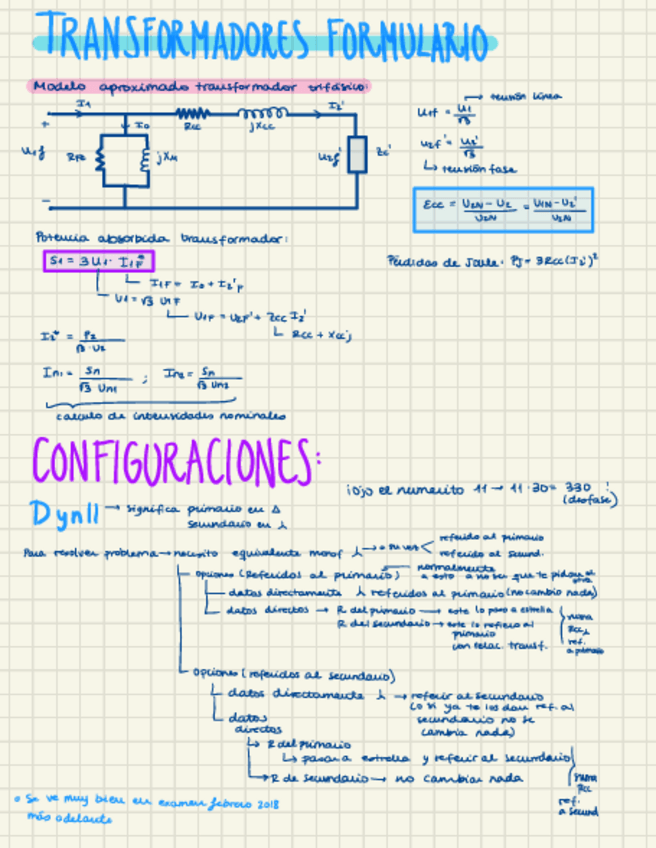 TRANSFORMADORES FORMULARIO
Modelo aproximado transformador trifásico:
I1
Rcc
jXcc
I2'
+
Io
U1f
RFe
jXm
U2f'
Zc'
-
→ tensión línea
U1f = U1/√3
U2f' = U2'/√3
↳ tensión fase
Ecc = (U2N - U2)/U2N = (U1N - U2')/U2N
Potencia absorbida transformador:
S1 = 3U1· I1F*
I1F = Io + I2'F
U1 = √3 U1F
U1F = U2F' + Zcc I2'
Rcc + Xccj
Pérdidas de Joule: PJ = 3Rcc(I2')²
I2* = P2/(√3·U2)
In1 = Sn/(√3 Un1) ; In2 = Sn/(√3 Un2)
calculo de intensidades nominales
CONFIGURACIONES:
¡Ojo el numerito 11 → 11·30 = 330 !
(desfase)
Dyn11 → significa primario en Δ
secundario en ⅄
Para resolver problema → necesito equivalente monof ⅄
referido al primario
referido al secund.
normalmente
a esto a no ser que te pidan el otro
Opciones (referidos al primario)
datos directamente ⅄ referidos al primario (no cambio nada)
datos directos → R del primario → este lo paso a estrella
R del secundario → este lo refiero al
primario
con relac. transf.
suma
Rcc⅄
ref.
a primario
Opciones (referidos al secundario)
datos directamente ⅄ → referir al secundario
(o si ya te los dan ref. al
secundario no se
cambia nada)
datos
directos
↳ R del primario
↳ pasar a estrella y referir al secundario
→ R de secundario → no cambiar nada
suma
Rcc
ref.
a secund
Se ve muy bien en examen febrero 2018
más adelante